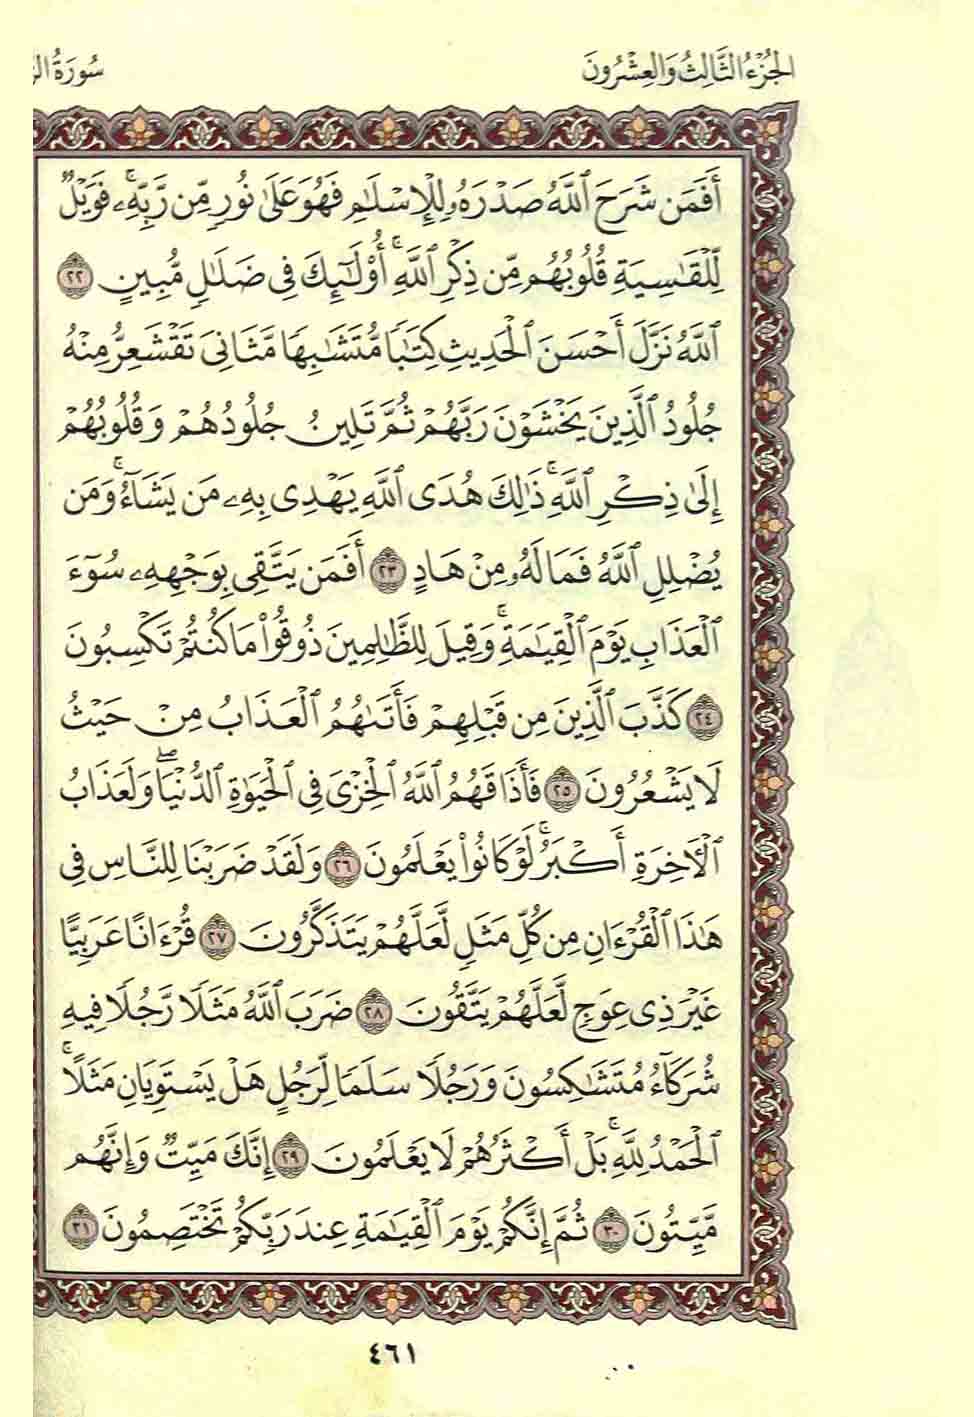 الجُزْءُ الثَّالِثُ وَالعِشْرُونَ
سُورَةُ
أَفَمَن شَرَحَ ٱللَّهُ صَدْرَهُۥ لِلْإِسْلَٰمِ فَهُوَ عَلَىٰ نُورٍ مِّن رَّبِّهِۦۚ فَوَيْلٌ
لِّلْقَٰسِيَةِ قُلُوبُهُم مِّن ذِكْرِ ٱللَّهِۚ أُو۟لَٰٓئِكَ فِى ضَلَٰلٍ مُّبِينٍ ٢٢
ٱللَّهُ نَزَّلَ أَحْسَنَ ٱلْحَدِيثِ كِتَٰبًا مُّتَشَٰبِهًا مَّثَانِىَ تَقْشَعِرُّ مِنْهُ
جُلُودُ ٱلَّذِينَ يَخْشَوْنَ رَبَّهُمْ ثُمَّ تَلِينُ جُلُودُهُمْ وَقُلُوبُهُمْ
إِلَىٰ ذِكْرِ ٱللَّهِۚ ذَٰلِكَ هُدَى ٱللَّهِ يَهْدِى بِهِۦ مَن يَشَآءُۚ وَمَن
يُضْلِلِ ٱللَّهُ فَمَا لَهُۥ مِنْ هَادٍ ٢٣ أَفَمَن يَتَّقِى بِوَجْهِهِۦ سُوٓءَ
ٱلْعَذَابِ يَوْمَ ٱلْقِيَٰمَةِۚ وَقِيلَ لِلظَّٰلِمِينَ ذُوقُوا۟ مَا كُنتُمْ تَكْسِبُونَ
٢٤ كَذَّبَ ٱلَّذِينَ مِن قَبْلِهِمْ فَأَتَىٰهُمُ ٱلْعَذَابُ مِنْ حَيْثُ
لَا يَشْعُرُونَ ٢٥ فَأَذَاقَهُمُ ٱللَّهُ ٱلْخِزْىَ فِى ٱلْحَيَوٰةِ ٱلدُّنْيَاۖ وَلَعَذَابُ
ٱلْءَاخِرَةِ أَكْبَرُۚ لَوْ كَانُوا۟ يَعْلَمُونَ ٢٦ وَلَقَدْ ضَرَبْنَا لِلنَّاسِ فِى
هَٰذَا ٱلْقُرْءَانِ مِن كُلِّ مَثَلٍ لَّعَلَّهُمْ يَتَذَكَّرُونَ ٢٧ قُرْءَانًا عَرَبِيًّا
غَيْرَ ذِى عِوَجٍ لَّعَلَّهُمْ يَتَّقُونَ ٢٨ ضَرَبَ ٱللَّهُ مَثَلًا رَّجُلًا فِيهِ
شُرَكَآءُ مُتَشَٰكِسُونَ وَرَجُلًا سَلَمًا لِّرَجُلٍ هَلْ يَسْتَوِيَانِ مَثَلًاۚ
ٱلْحَمْدُ لِلَّهِۚ بَلْ أَكْثَرُهُمْ لَا يَعْلَمُونَ ٢٩ إِنَّكَ مَيِّتٌ وَإِنَّهُم
مَّيِّتُونَ ٣٠ ثُمَّ إِنَّكُمْ يَوْمَ ٱلْقِيَٰمَةِ عِندَ رَبِّكُمْ تَخْتَصِمُونَ ٣١
٤٦١